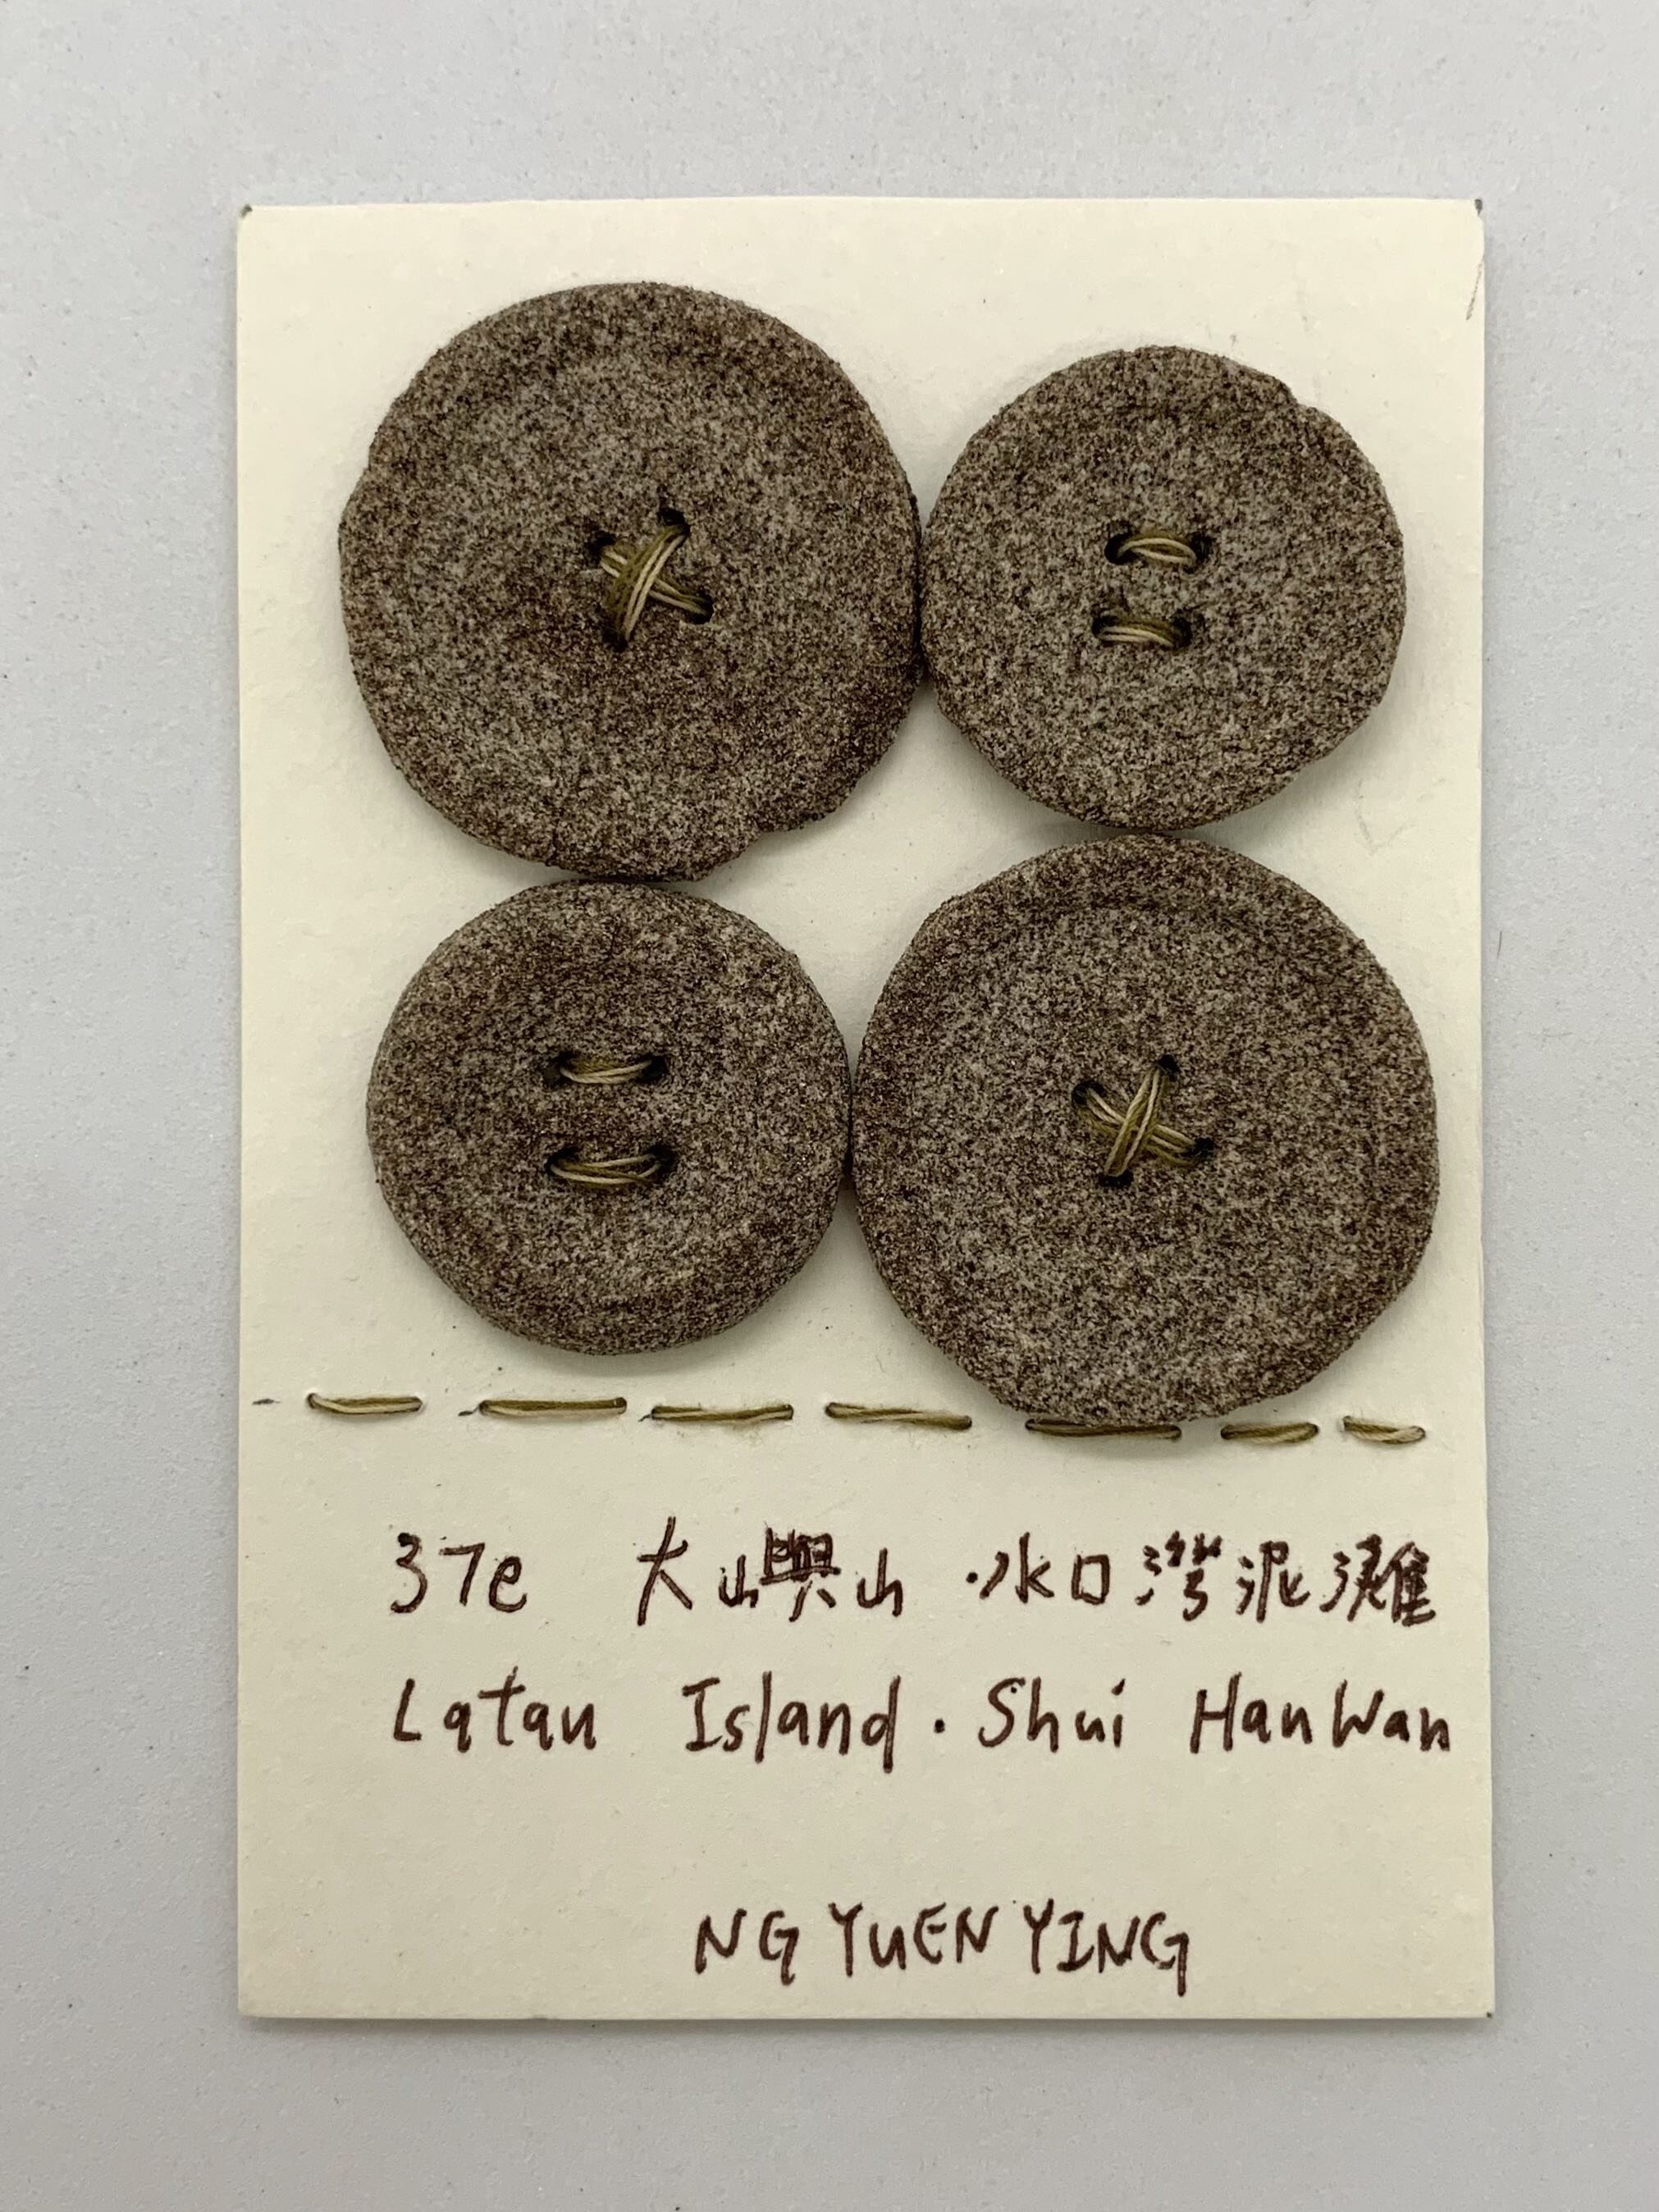 37e 大嶼山·水口灣泥灘
Latau Island · Shui Han Wan
NG YUEN YING